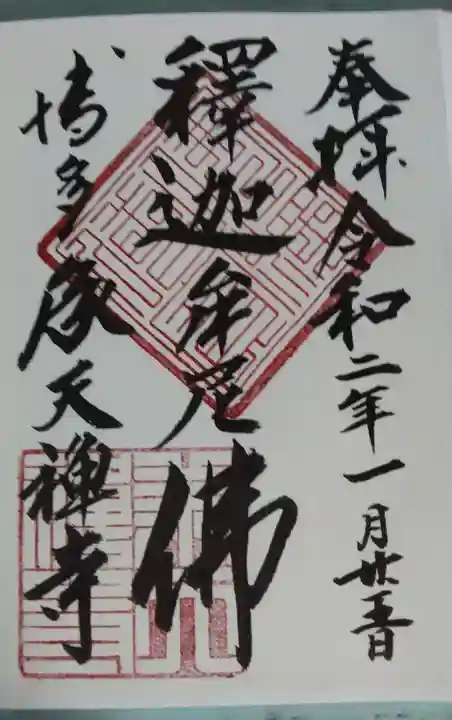 奉拝 令和二年一月廿五日
釋迦牟尼佛
博多 承天禅寺